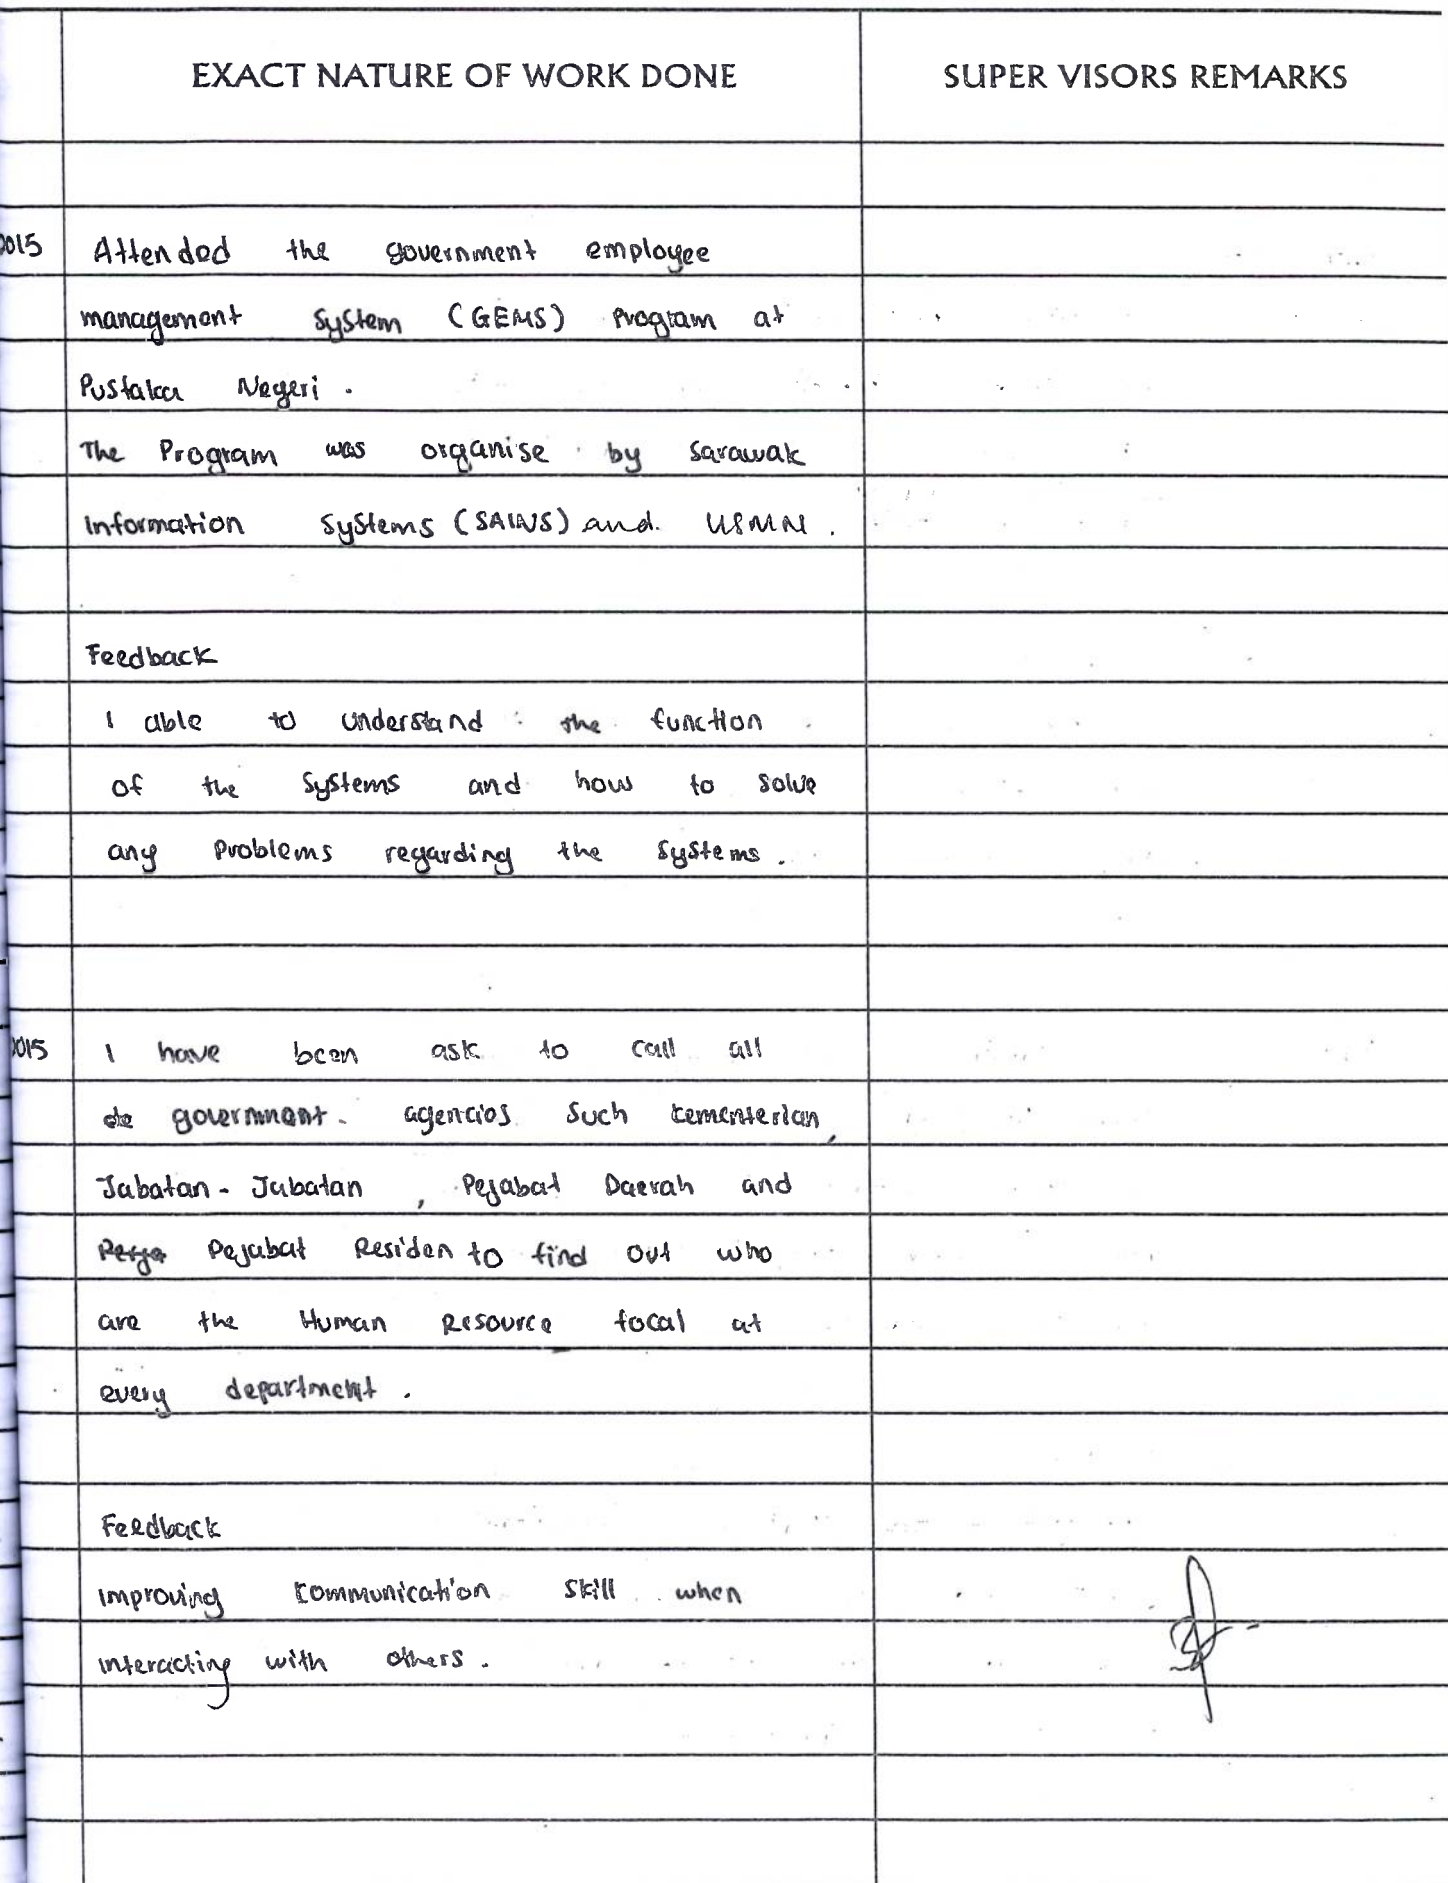 EXACT NATURE OF WORK DONE
SUPER VISORS REMARKS
015 Attended the government employee
management system (GEMS) Program at
Pustaka Negeri .
The Program was organise by Sarawak
Information Systems (SAINS) and
Feedback
I able to understand the function
of the systems and how to solve
any Problems regarding the systems .
015 I have been ask to call all
government agencies such kementerian,
Jabatan - Jabatan , Pejabat Daerah and
Pejabat Residen to find out who
are the Human Resource focal at
every department .
Feedback
improving communication skill when
interacting with others .